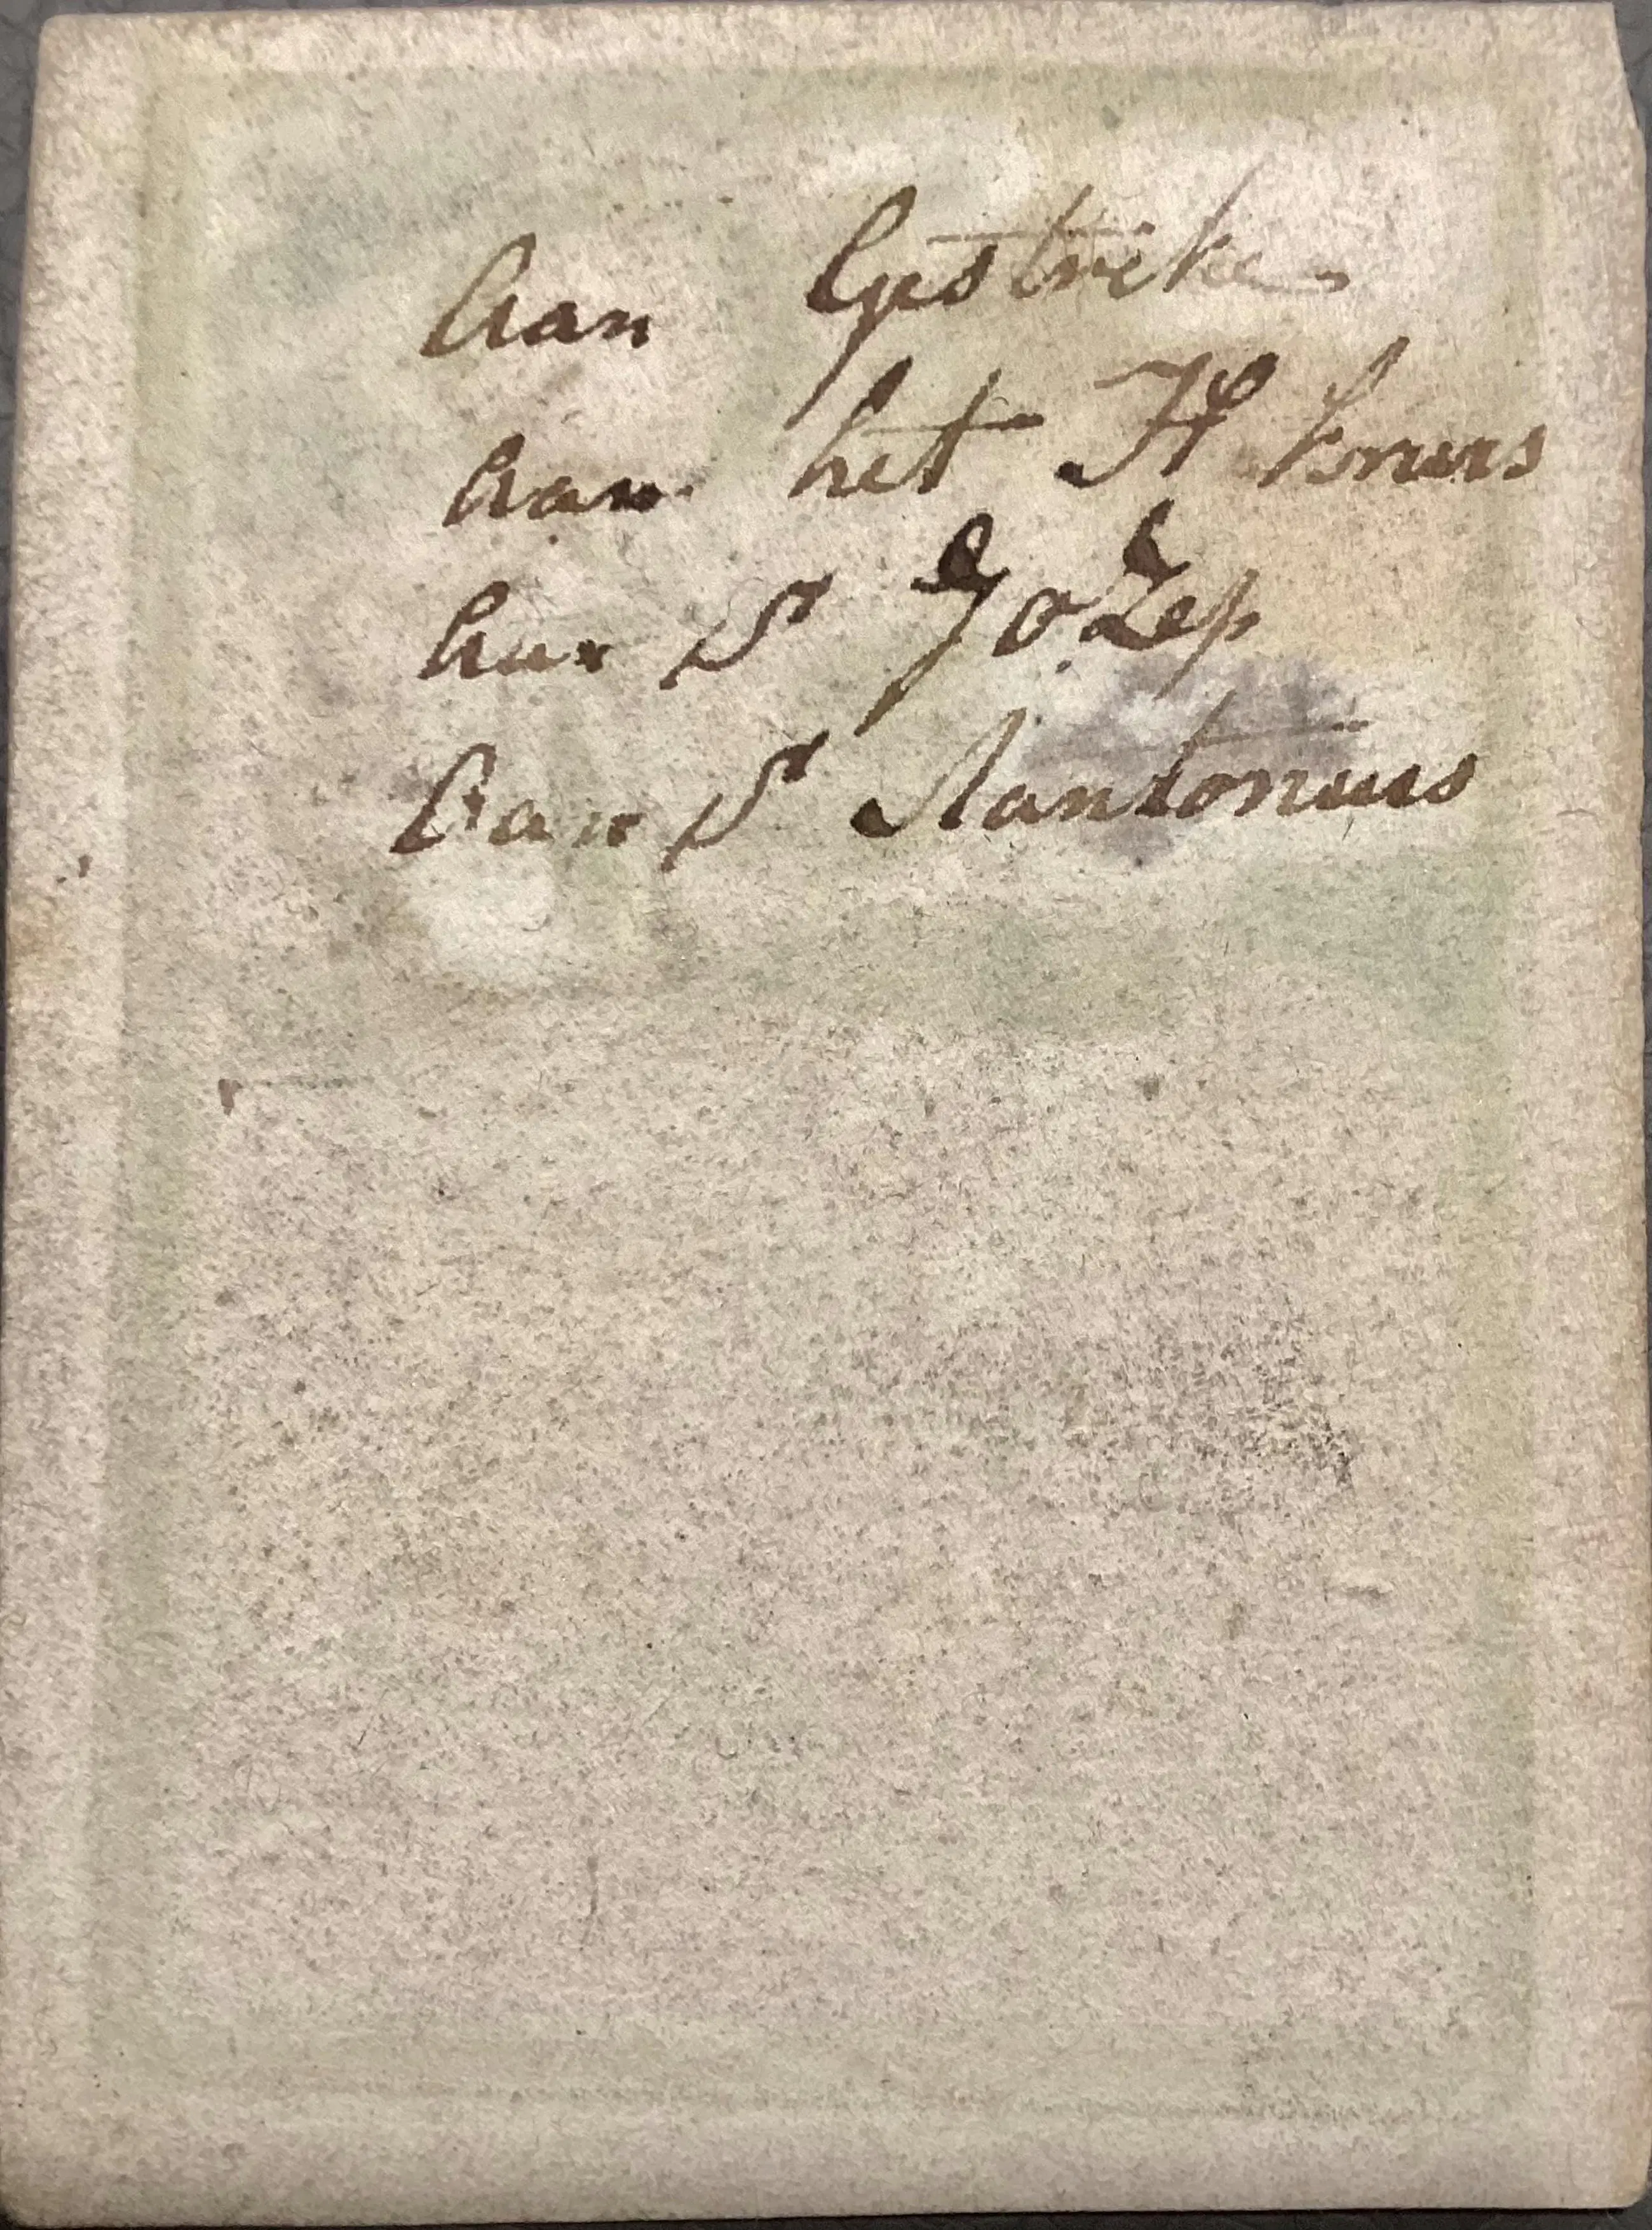 Aan Gestrike
Aan het H kruis
Aan St Jozep
Aan St Aantonius